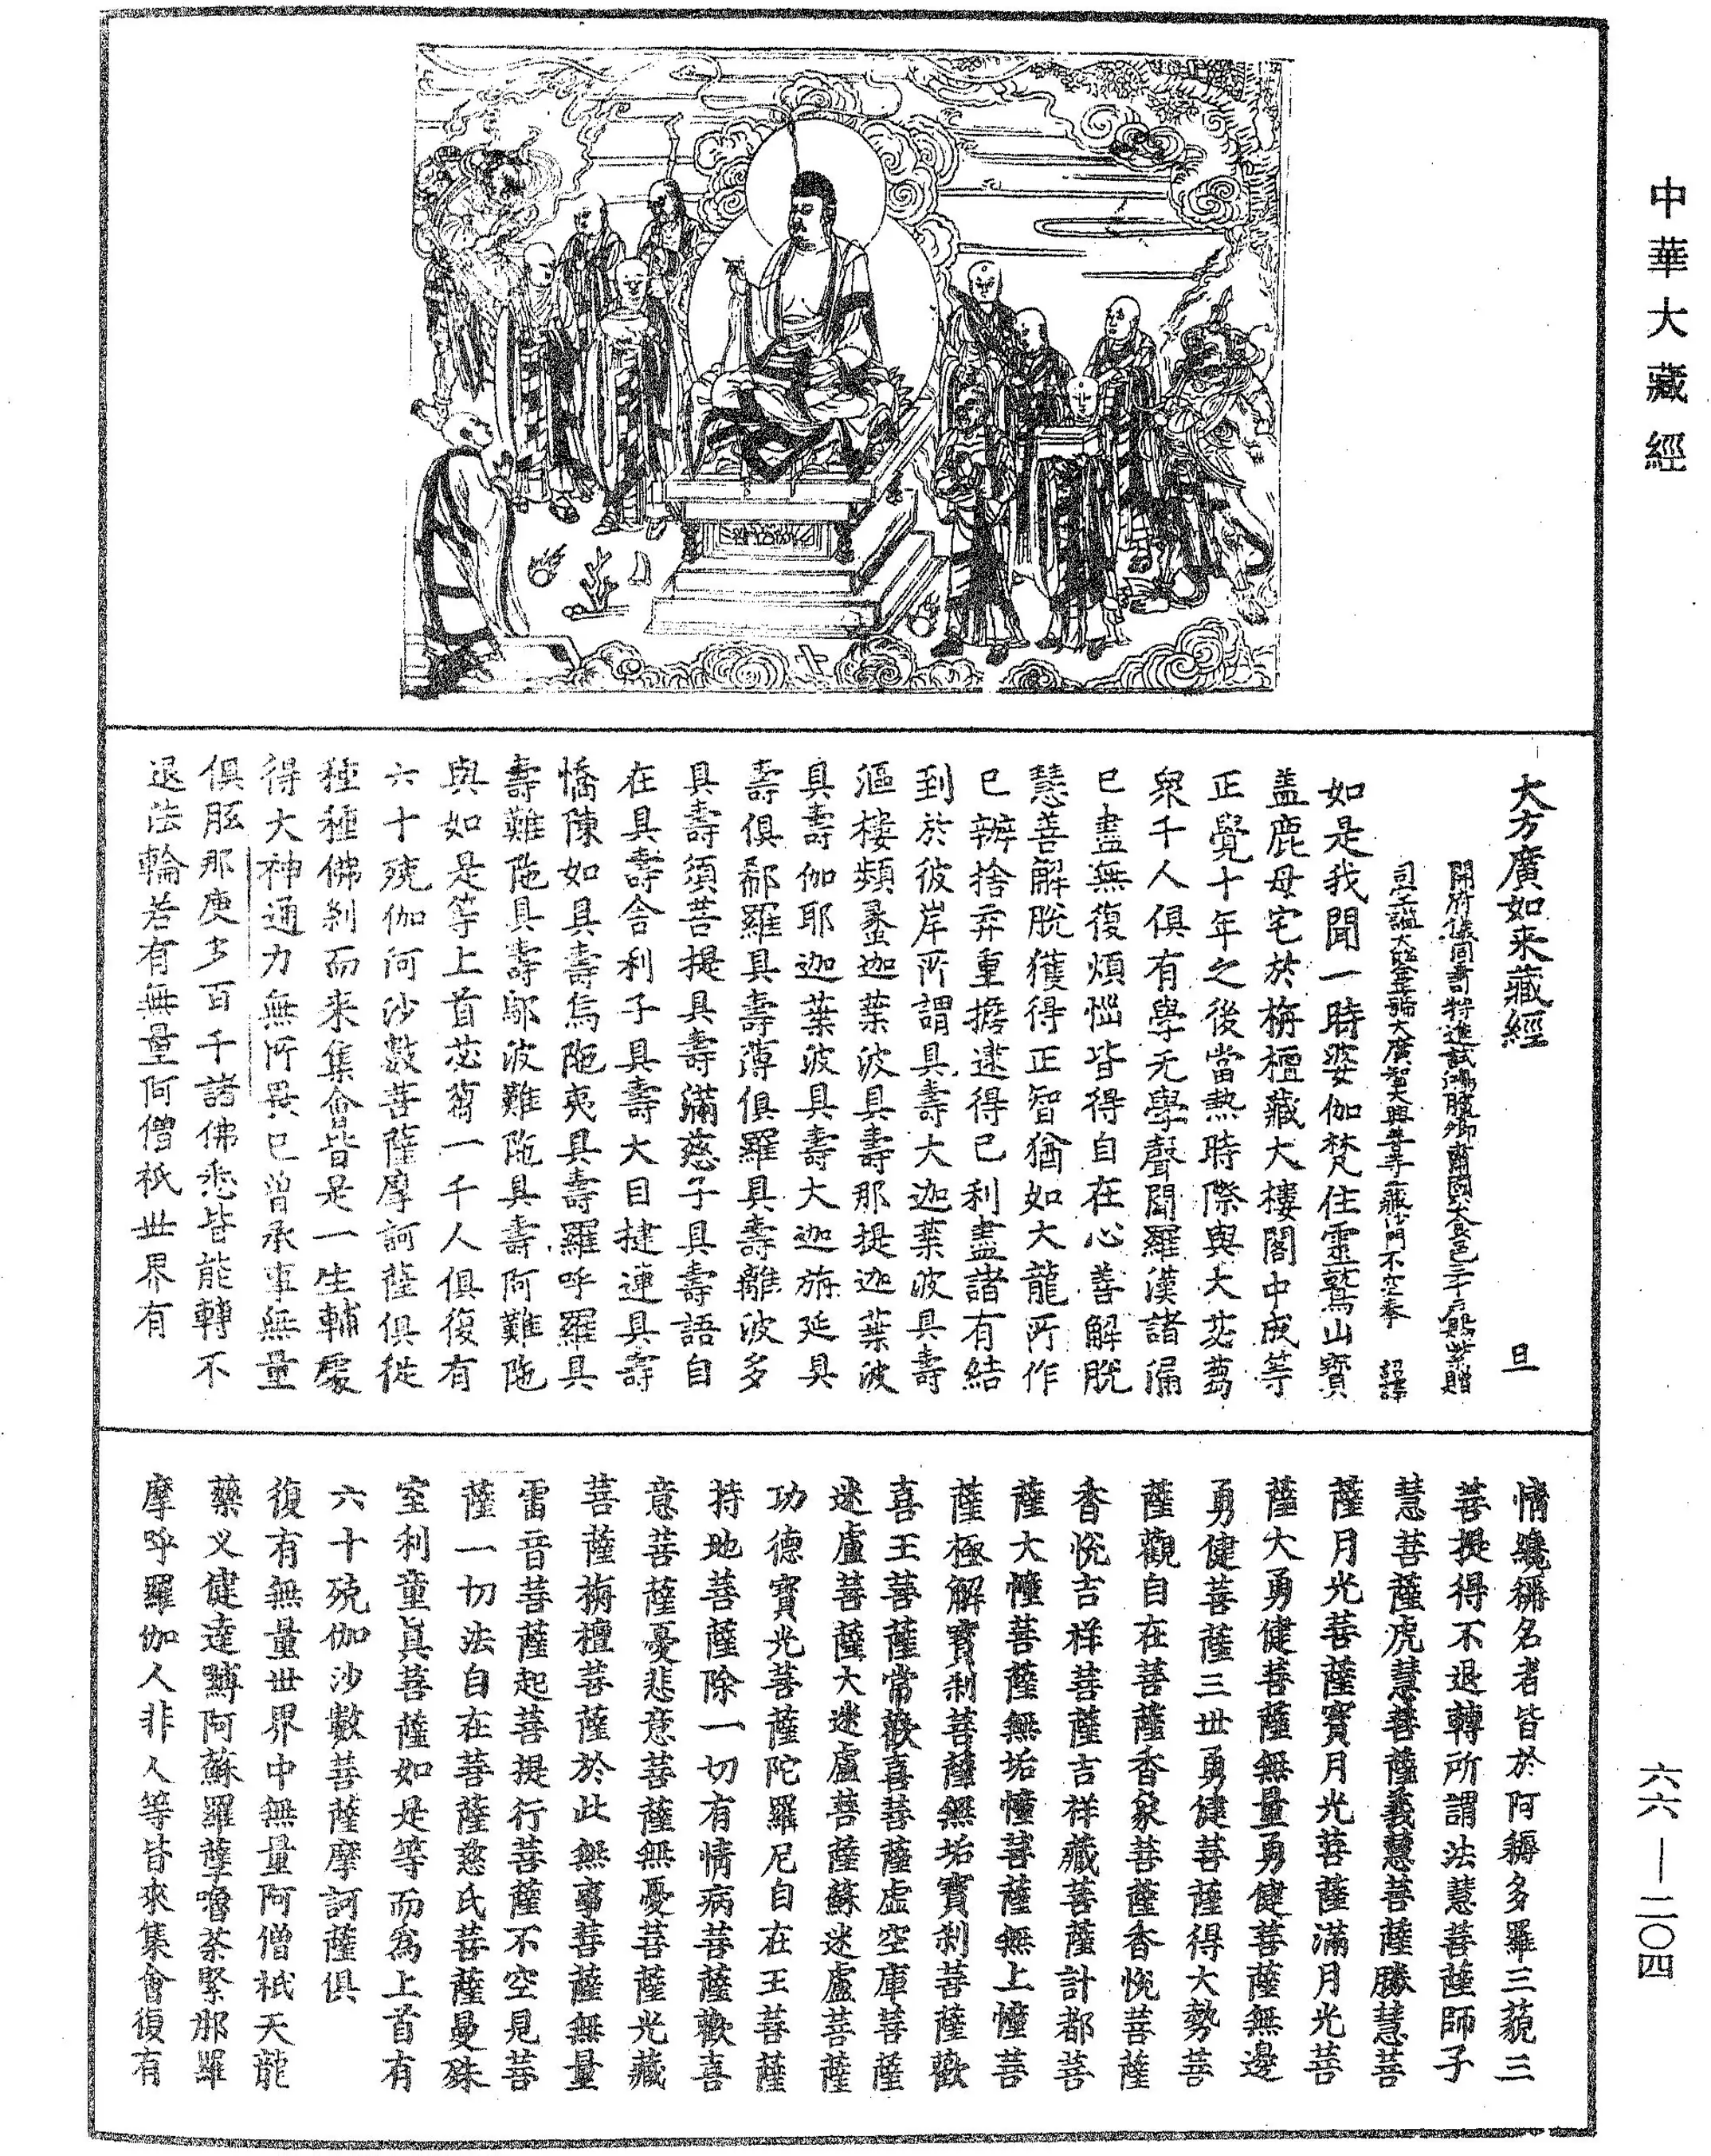 中華大藏經
大方廣如来藏經 旦
開府儀同三司特進試鴻臚卿肅國公食邑三千户賜紫贈
司空謚大鑒正號大廣智大興善寺三藏沙門不空奉 詔譯
如是我聞一時婆伽梵住靈鷲山寶
盖鹿母宅於栴檀藏大樓閣中成等
正覺十年之後當熱時際與大苾蒭
衆千人俱有學无學聲聞羅漢諸漏
已盡無復煩惱皆得自在心善解脫
慧善解脫獲得正智猶如大龍所作
已辦捨弃重擔逮得已利盡諸有結
到於彼岸所謂具壽大迦葉波具壽
漚樓頻蠡迦葉波具壽那提迦葉波
具壽伽耶迦葉波具壽大迦旃延具
壽俱郗羅具壽薄俱羅具壽離波多
具壽須菩提具壽滿慈子具壽語自
在具壽舍利子具壽大目揵連具壽
憍陳如具壽烏陁夷具壽羅呼羅具
壽難陁具壽鄔波難陁具壽阿難陁
與如是等上首苾蒭一千人俱復有
六十殑伽河沙數菩薩摩訶薩俱從
種種佛刹而来集會皆是一生輔處
得大神通力無所畏已曾承事無量
俱胝那庾多百千諸佛悉皆能轉不
退法輪若有無量阿僧祇世界有
情纔稱名者皆於阿耨多羅三藐三
菩提得不退轉所謂法慧菩薩師子
慧菩薩虎慧菩薩義慧菩薩勝慧菩
薩月光菩薩寶月光菩薩滿月光菩
薩大勇健菩薩無量勇健菩薩無邊
勇健菩薩三世勇健菩薩得大勢菩
薩觀自在菩薩香象菩薩香悅菩薩
香悅吉祥菩薩吉祥藏菩薩計都菩
薩大幢菩薩無垢幢菩薩無上幢菩
薩極解寶刹菩薩無垢寶刹菩薩歡
喜王菩薩常歡喜菩薩虛空庫菩薩
迷盧菩薩大迷盧菩薩蘇迷盧菩薩
功德寶光菩薩陀羅尼自在王菩薩
持地菩薩除一切有情病菩薩歡喜
意菩薩憂悲意菩薩無憂菩薩光藏
菩薩栴檀菩薩於此無爭菩薩無量
雷音菩薩起菩提行菩薩不空見菩
薩一切法自在菩薩慈氏菩薩曼殊
室利童真菩薩如是等而為上首有
六十殑伽沙數菩薩摩訶薩俱
復有無量世界中無量阿僧祇天龍
藥义健達嚩阿蘇羅孽嚕荼緊那羅
摩呼羅伽人非人等皆來集會復有
六六——二〇四